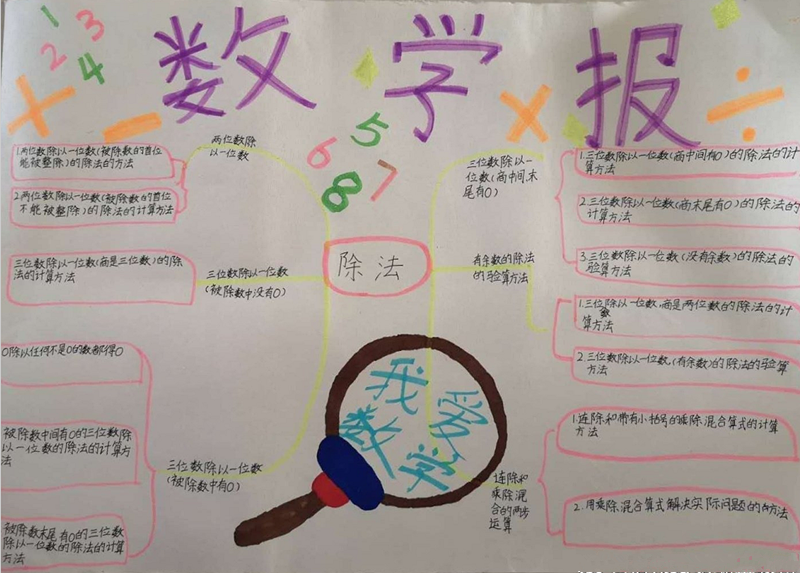 数学报
1
2
3
4
5
6
7
8
除法
两位数除
以一位数
1.两位数除以一位数(被除数的首位
能被整除)的除法的方法
2.两位数除以一位数(被除数的首位
不能被整除)的除法的计算方法
三位数除以一位数
(被除数中没有0)
三位数除以一位数(商是三位数)的除
法的计算方法
三位数除以一位数
(被除数中有0)
0除以任何不是0的数都得0
被除数中间有0的三位数除
以一位数的除法的计算方
法
被除数末尾有0的三位数
除以一位数的除法的计算
方法
三位数除以一
位数(商中间,末
尾有0)
1.三位数除以一位数(商中间有0)的除法的计
算方法
2.三位数除以一位数(商末尾有0)的除法的
计算方法
3.三位数除以一位数(没有余数)的除法的
验算方法
有余数的除法
的验算方法
1.三位除以一位数,商是两位数的除法的计
数
算方法
2.三位数除以一位数,(有余数)的除法的验算
方法
连除和
乘除混
合的两步
运算
1.连除和带有小括号的乘除混合算式的计算
方法
2.用乘除混合算式解决实际问题的方法
我爱
数学